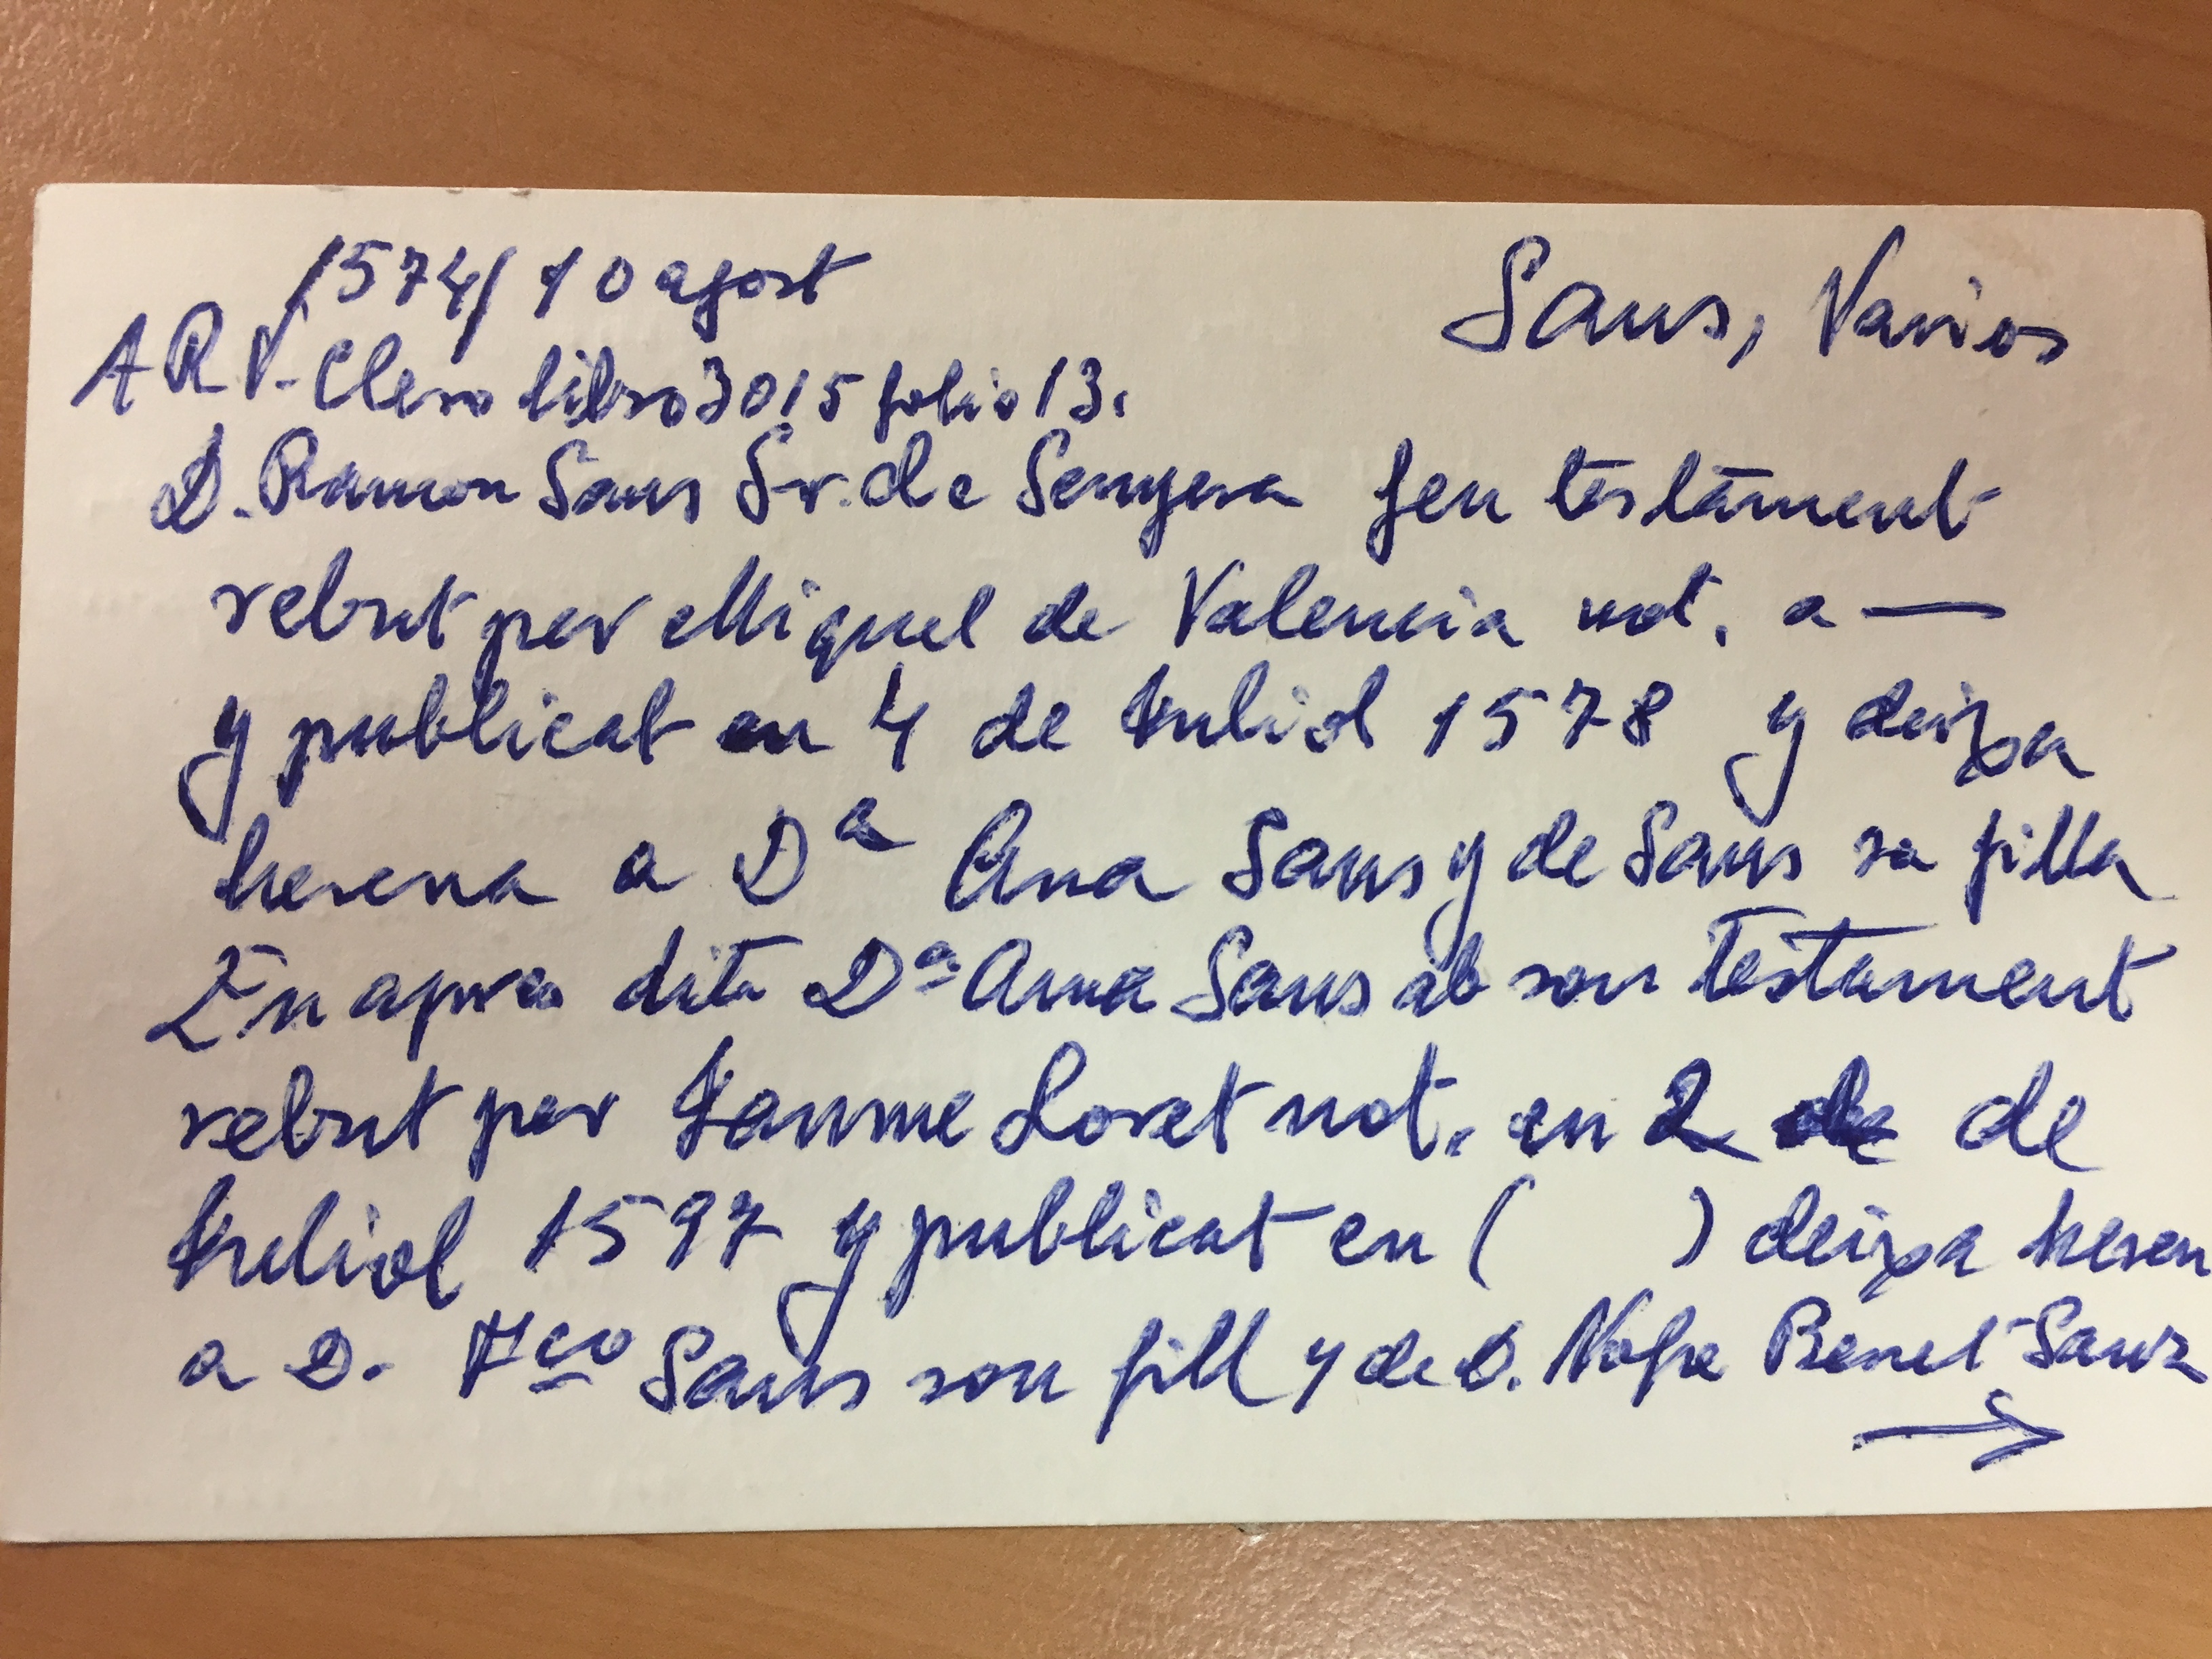 1574/ 10 agost
Sans, Varios
ARV. Clero libro 3015 folio 13.
D. Ramon Sans Sr. de Senyera feu testament
rebut per Miquel de Valencia not. a —
y publicat en 4 de Juliol 1578 y deixa
hereva a Dª Ana Sans y de Sans sa filla
En apres dita Dª Anna Sans ab son testament
rebut per Jaume Loret not. en 2 de
Juliol 1597 y publicat en (      ) deixa hereu
a D. Fco Sans son fill y de D. Nofre Benet Sanz
→